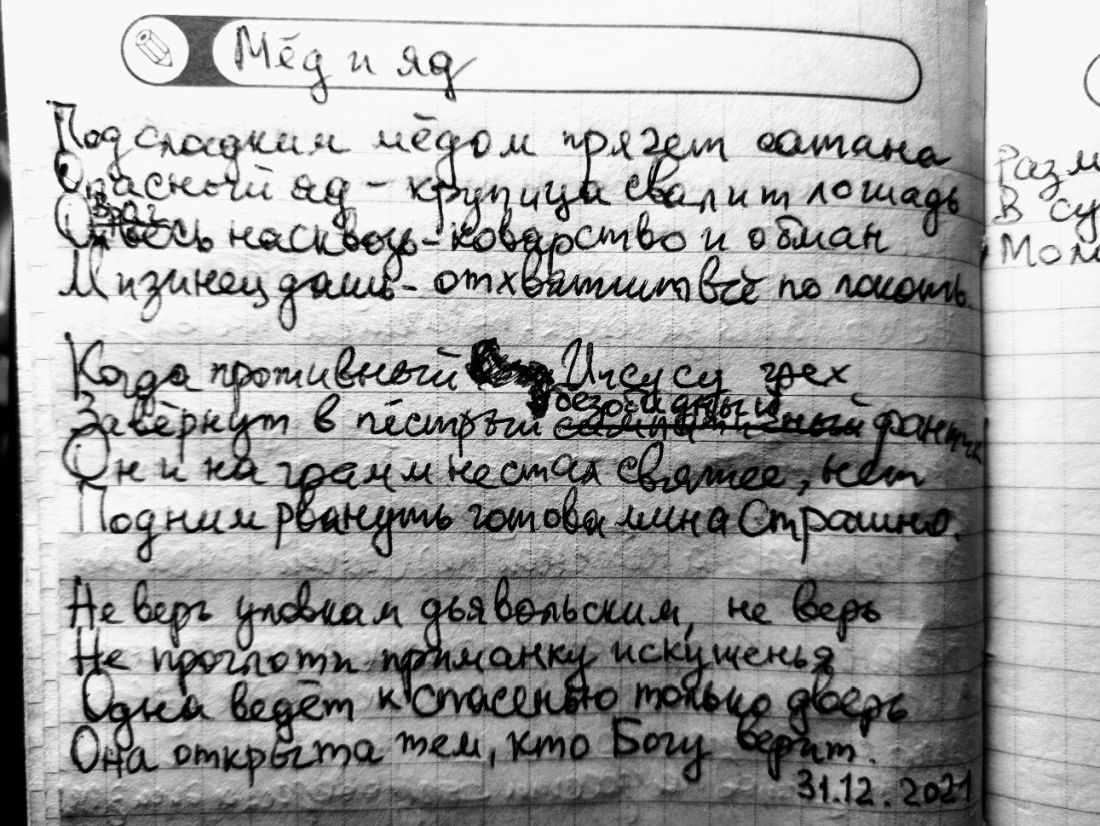 Мёд и яд
Под сладким мёдом прячет сатана
Опасный яд - крупица свалит лошадь
Враг весь насквозь - коварство и обман
Мизинец дашь - отхватит всё по локоть.
Когда противный Иисусу грех
Завёрнут в пёстрый безобидный фантик
Он и на грамм не стал святее, нет
Под ним рвануть готова мина Страшно.
Не верь уловкам дьявольским, не верь
Не проглоти приманку искушенья
Одна ведёт к спасенью только дверь
Она открыта тем, кто Богу верит.
31.12.2021
Разм
В су
Мол